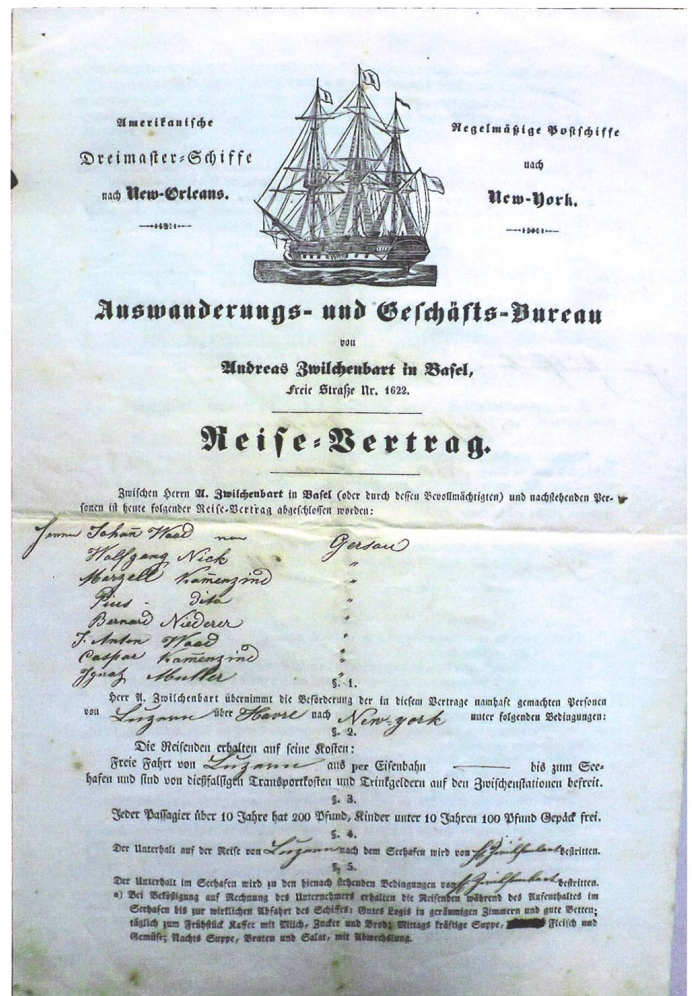 Amerikanische
Dreimaster-Schiffe
nach New-Orleans.
Regelmäßige Postschiffe
nach
New-York.
Auswanderungs- und Geschäfts-Bureau
von
Andreas Zwilchenbart in Basel,
Freie Straße Nr. 1622.
Reise-Vertrag.
Zwischen Herrn A. Zwilchenbart in Basel (oder durch dessen Bevollmächtigten) und nachstehenden Per-
sonen ist heute folgender Reise-Vertrag abgeschlossen worden:
Johan̄ Waad von Gersau
Wolfgang Nick "
Marzell Kam̄enzind "
Pius - dito "
Bernard Niederer "
J. Anton Waad "
Caspar Kam̄enzind "
Ignaz Muller "
§. 1.
Herr A. Zwilchenbart übernimmt die Beförderung der in diesem Vertrage namhaft gemachten Personen
von Luzern über Havre nach New-york unter folgenden Bedingungen:
§. 2.
Die Reisenden erhalten auf seine Kosten:
Freie Fahrt von Luzern aus per Eisenbahn — bis zum See-
hafen und sind von dießfallsigen Transportkosten und Trinkgeldern auf den Zwischenstationen befreit.
§. 3.
Jeder Passagier über 10 Jahre hat 200 Pfund, Kinder unter 10 Jahren 100 Pfund Gepäck frei.
§. 4.
Der Unterhalt auf der Reise von Luzern nach dem Seehafen wird von Zwilchenbart bestritten.
§. 5.
Der Unterhalt im Seehafen wird zu den hienach stehenden Bedingungen von Zwilchenbart bestritten.
a) Bei Beköstigung auf Rechnung des Unternehmers erhalten die Reisenden während des Aufenthaltes im
Seehafen bis zur wirklichen Abfahrt des Schiffes: Gutes Logis in geräumigen Zimmern und gute Betten;
täglich zum Frühstück Kaffee mit Milch, Zucker und Brod; Mittags kräftige Suppe, Fleisch und
Gemüse; Nachts Suppe, Braten und Salat, mit Abwechslung.